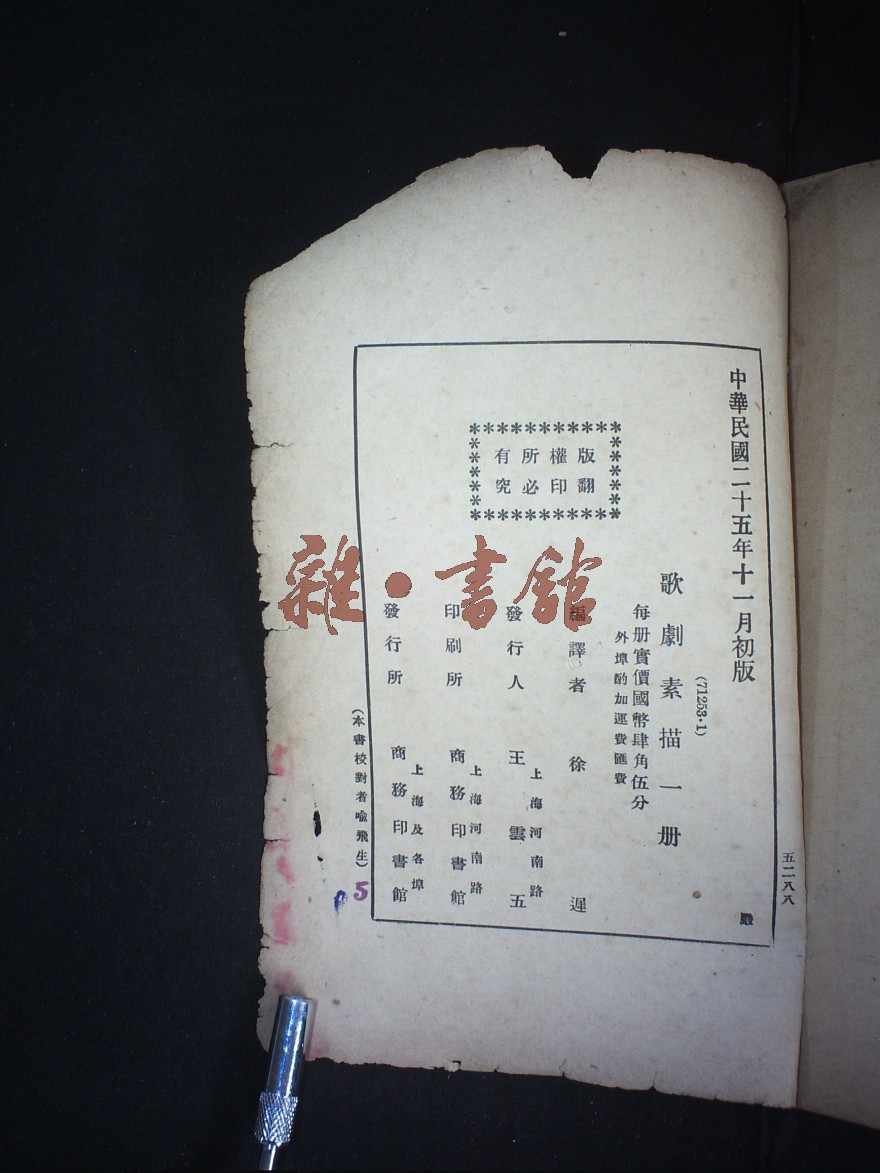 五二八八
中華民國二十五年十一月初版
(71253·1)
歌劇素描一册
每册實價國幣肆角伍分
外埠酌加運費匯費
版權所有
翻印必究
編譯者 徐遲
發行人 王雲五
上海河南路
印刷所 商務印書館
上海河南路
發行所 商務印書館
上海及各埠
(本書校對者喩飛生)
5
雜·書館